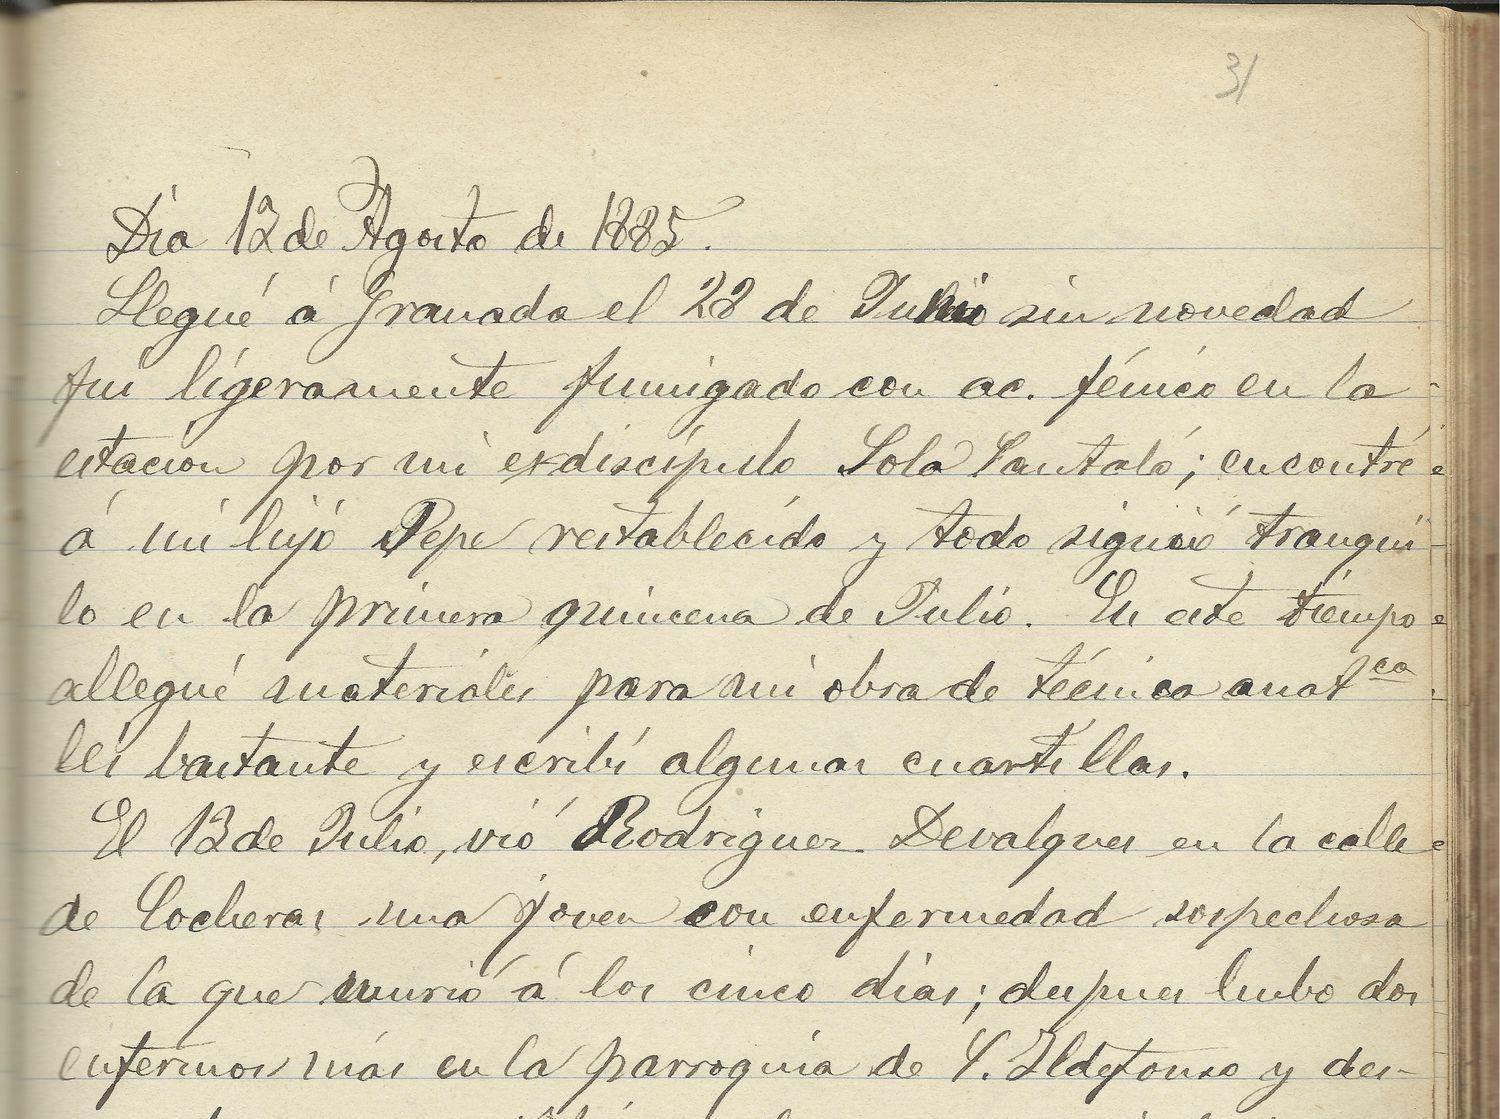 31
Dia 12 de Agosto de 1885.
Llegué á Granada el 28 de Junio sin novedad
fui ligeramente fumigado con ac. fénico en la
estacion por mi exdiscípulo Sola Santaló; encontré
á mi hijo Pepe restablecido y todo siguió tranqui-
lo en la primera quincena de Julio. En este tiempo
allegué materiales para mi obra de técnica anatca
leí bastante y escribí algunas cuartillas.
El 13 de Julio, vió Rodriguez Devalques en la calle
de Cocheras una joven con enfermedad sospechosa
de la que murió á los cinco dias; despues hubo dos
enfermos más en la parroquia de S. Ildefonso y des-